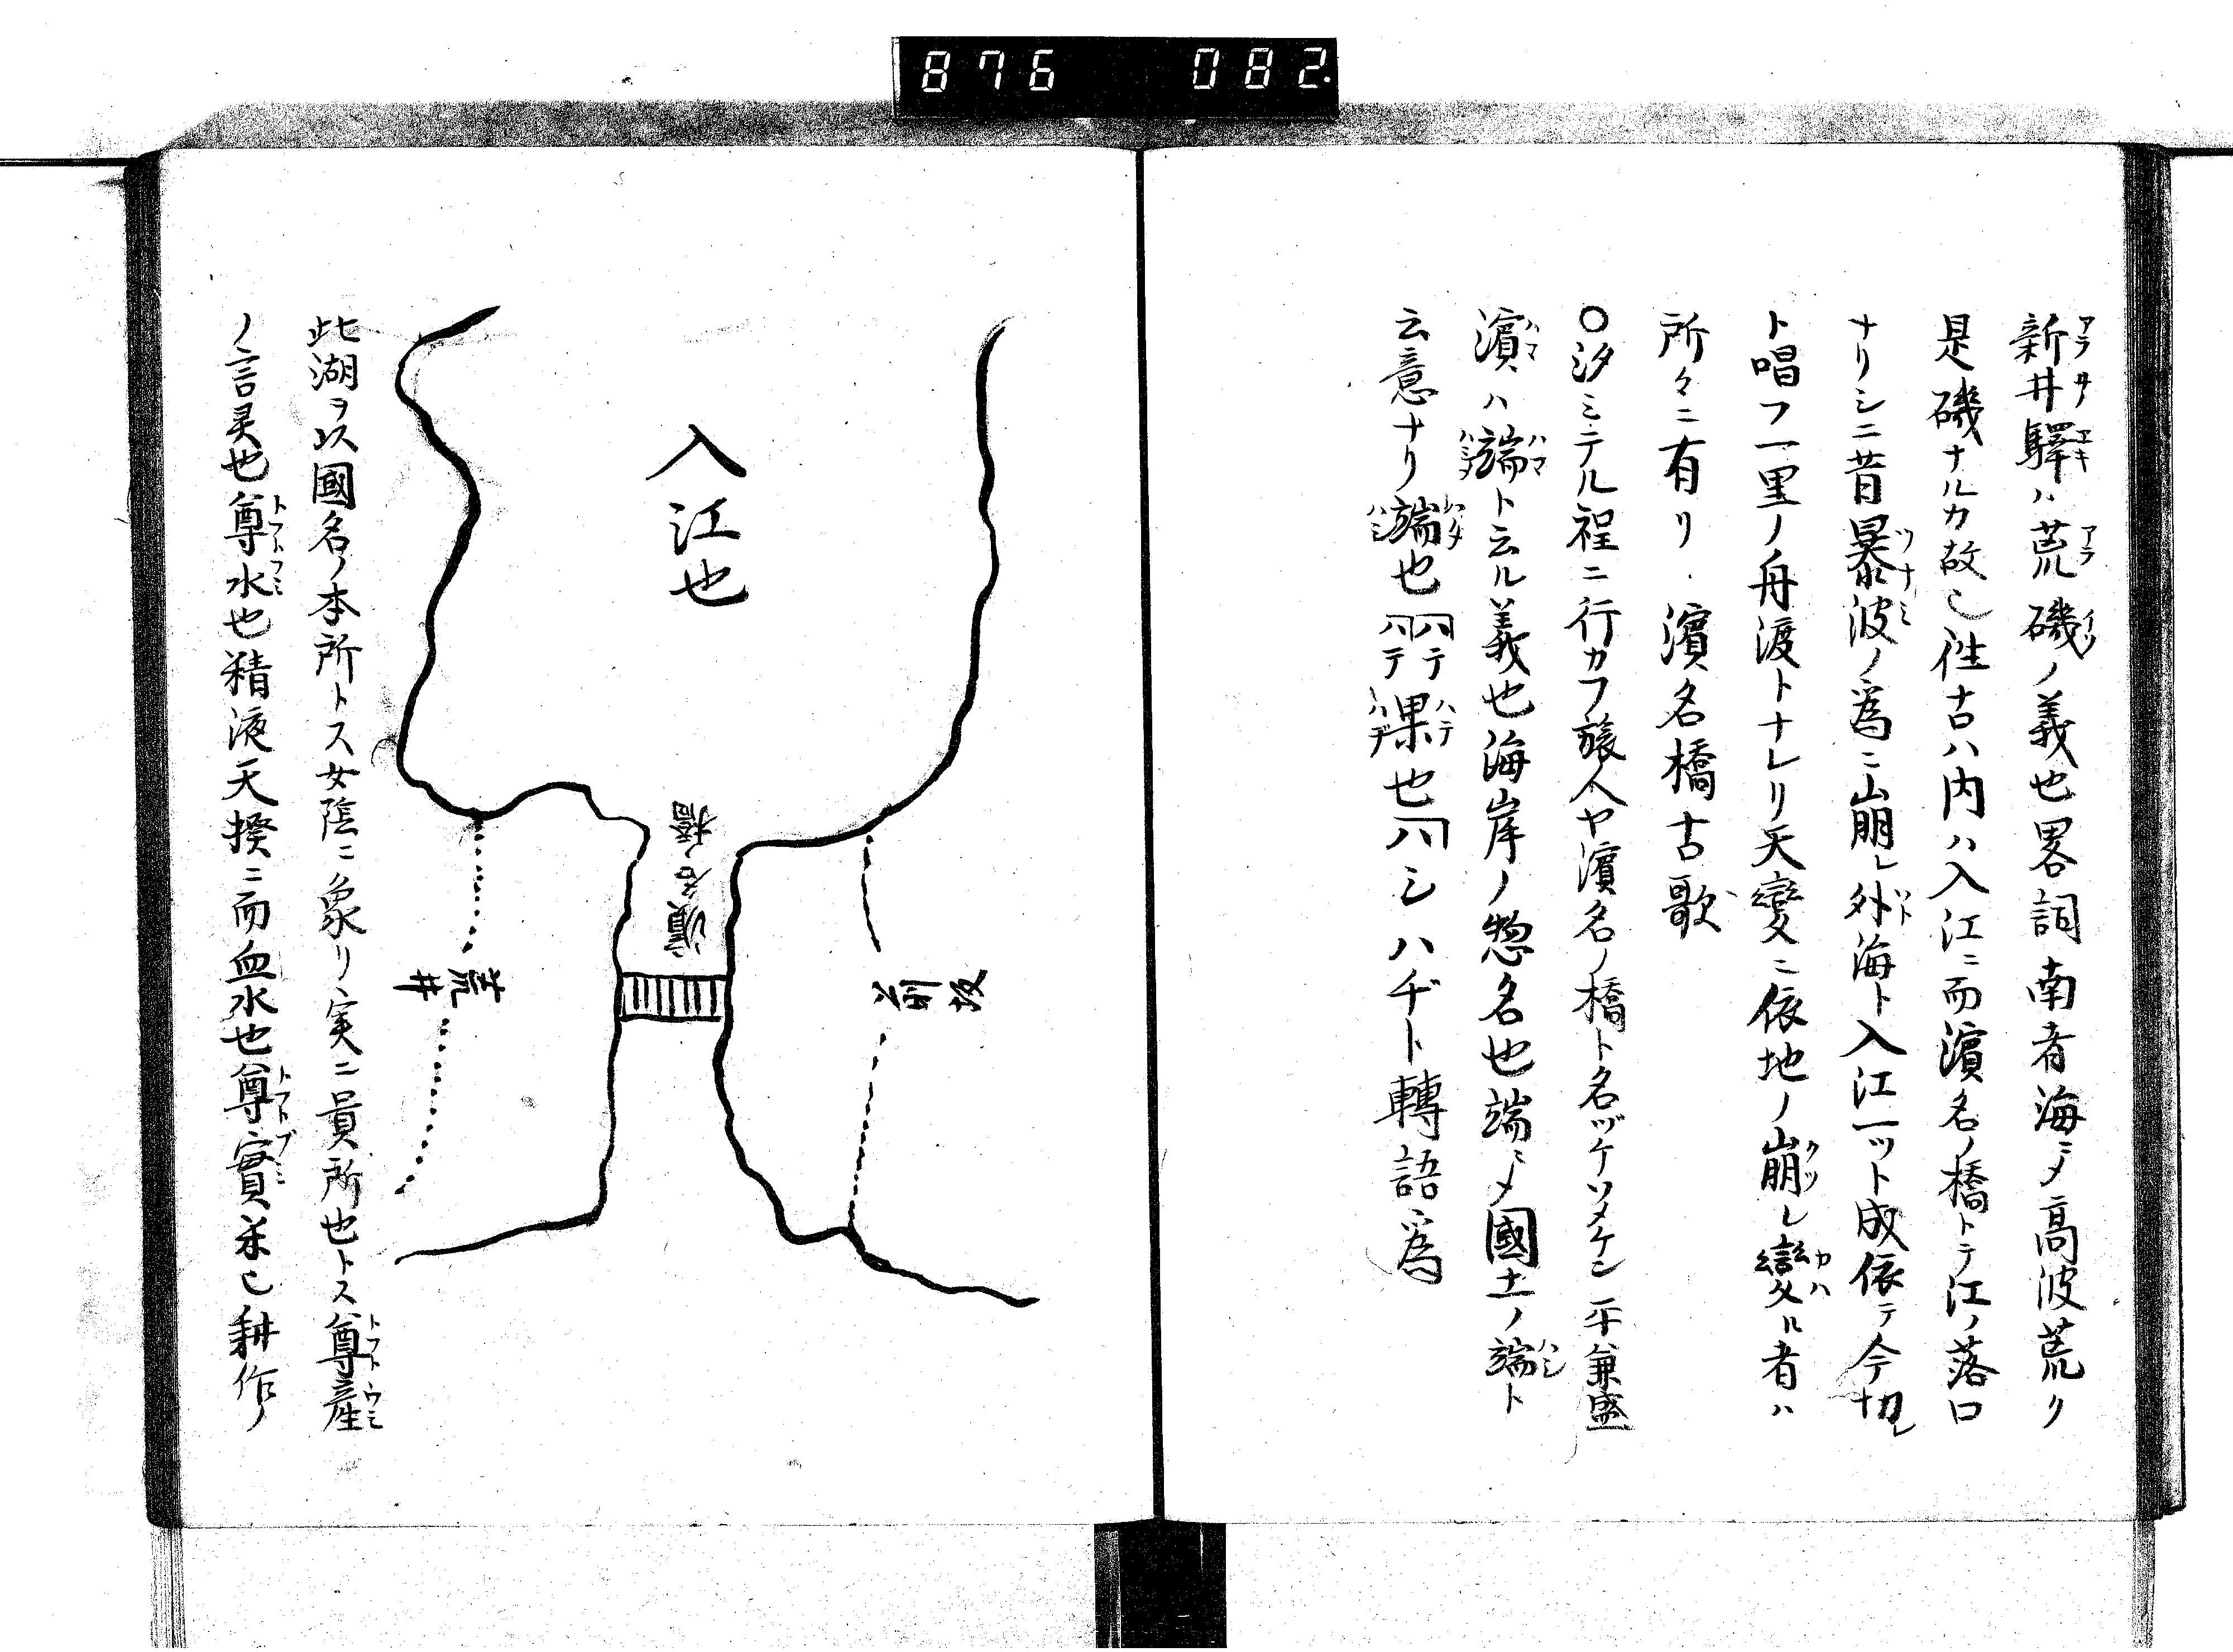 876 082
新井驛ハ荒磯ノ義也畧詞南者海ニ〆高波荒ク
是磯ナルカ故也往古ハ内ハ入江ニ而濵名ノ橋トテ江ノ落口
ナリシニ昔暴波ノ為ニ崩レ外海ト入江一ツト成依テ今切レ
ト唱フ一里ノ舟渡トナレリ天變ニ依地ノ崩レ變ル者ハ
所々ニ有リ 濵名橋古歌
〇汐ミテル程ニ行カフ旅人ヤ濵名ノ橋ト名ヅケソメケン 平兼盛
濵ハ端ト云ル義也海岸ノ惣名也端ニ〆國土ノ端ト
云意ナリ端也ハテ果也ハシハヂト轉語為
入江也
濵名ノ橋
荒井
前坂
此湖ヲ以國名ノ本所トス女陰ニ象リ実ニ貴所也トス尊産
ノ言灵也尊水也精液天揆ニ而血水也尊實米也耕作ノ